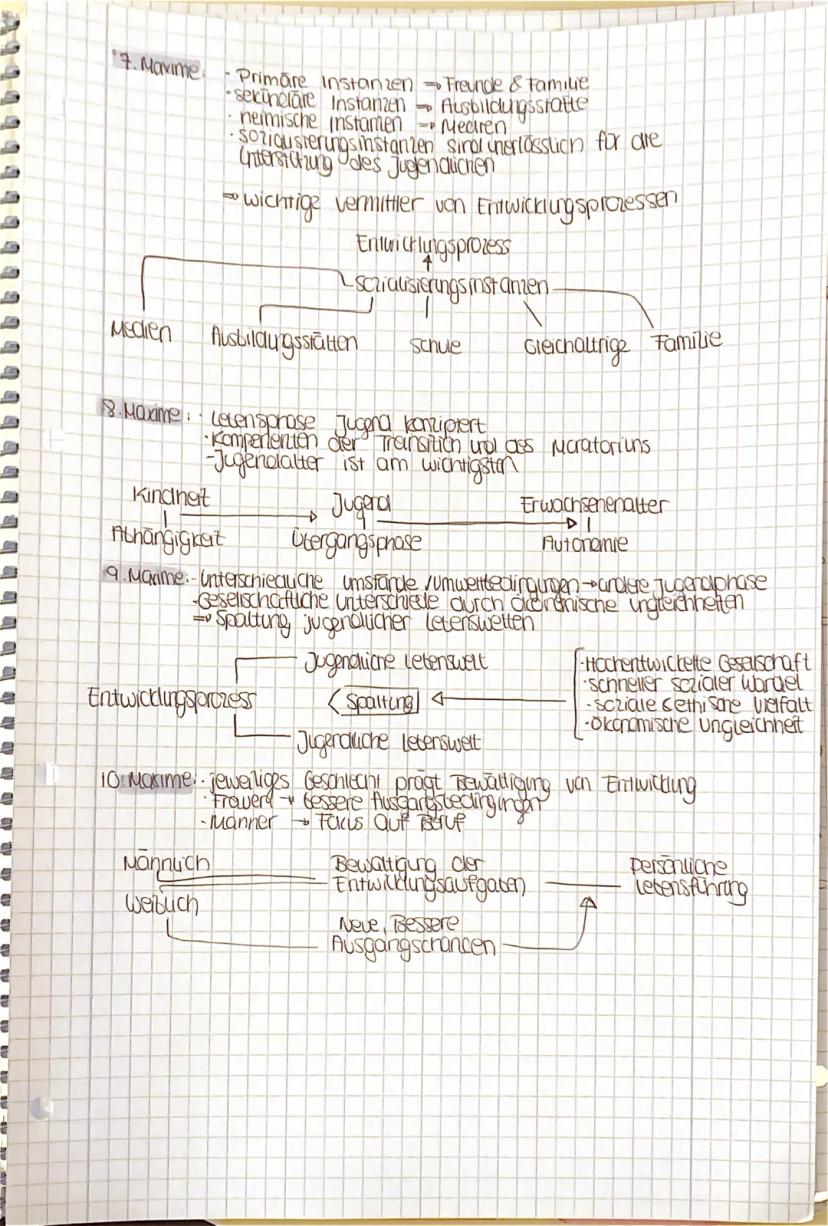 7. Maxime: · Primäre Instanzen → Freunde & Familie
· sekündäre Instanzen → Ausbildungsstätte
· heimische Instanzen → Medien
· Sozialisierungsinstanzen sind unerlässlich für die
Unterstützung des Jugendlichen
⇒ wichtige Vermittler von Entwicklungsprozessen
Entwicklungsprozess
Sozialisierungsinstanzen
Medien Ausbildungsstätten Schule Gleichaltrige Familie
8. Maxime: · Lebensphase Jugend konzipiert
· Komponenten der Transition und des Moratoriums
- Jugendalter ist am wichtigsten
Kindheit Jugend Erwachsenenalter
Abhängigkeit Übergangsphase Autonomie
9. Maxime: - Unterschiedliche umstände / Umweltbedingungen → andere Jugendphase
- Gesellschaftliche Unterschiede durch ökonomische ungleichheiten
⇒ Spaltung jugendlicher Lebenswelten
Jugendliche Lebenswelt
Entwicklungsprozess Spaltung
Jugendliche Lebenswelt
· Hochentwickelte Gesellschaft
· schneller sozialer Wandel
· soziale & ethische Vielfalt
· Ökonomische Ungleichheit
10. Maxime: · jeweiliges Geschlecht prägt Bewältigung von Entwicklung
· Frauen → bessere Ausgangsbedingungen
· Männer → Fokus auf Beruf
Männlich Bewältigung der Entwicklungsaufgaben persönliche Lebensführung
Weiblich
Neue, Bessere
Ausgangschancen